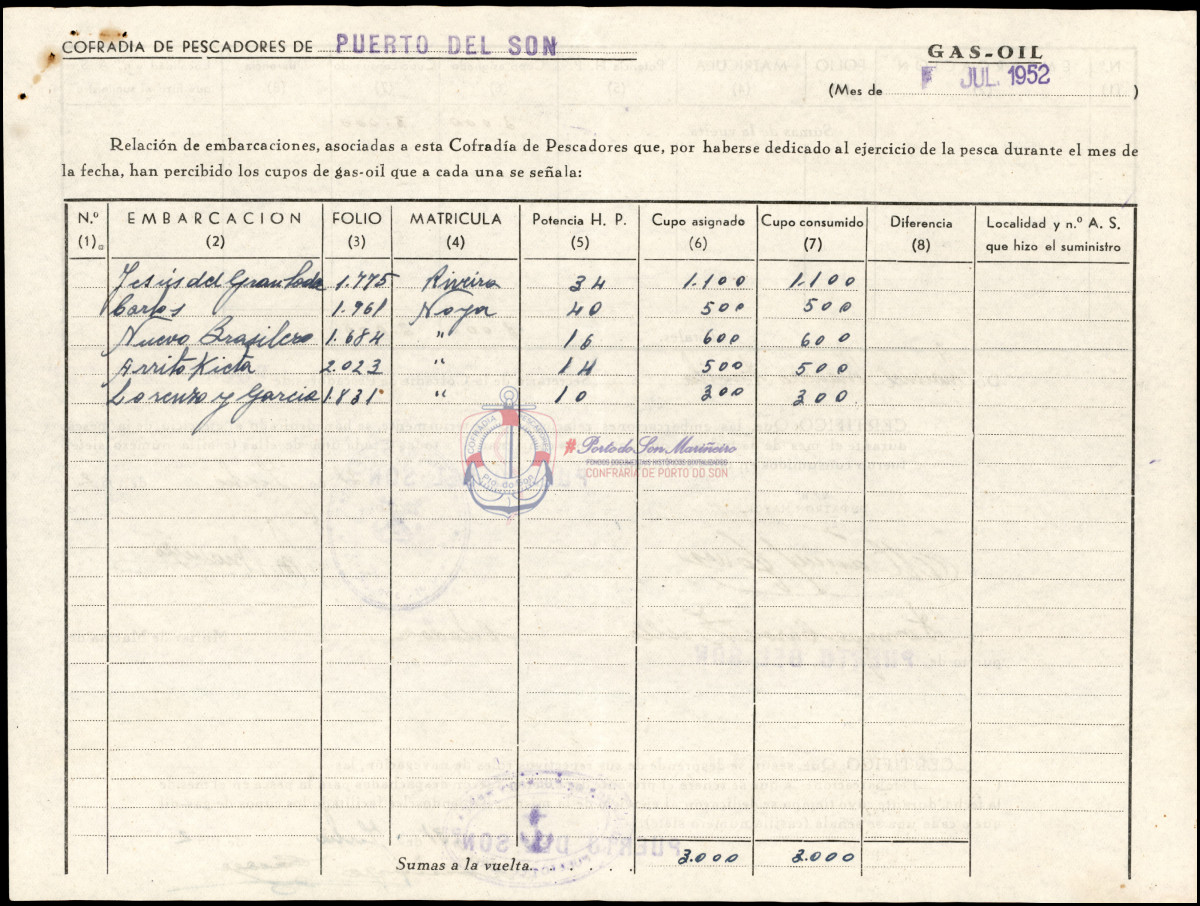 COFRADIA DE PESCADORES DE PUERTO DEL SON
GAS-OIL
(Mes de JUL. 1952)
Relación de embarcaciones, asociadas a esta Cofradía de Pescadores que, por haberse dedicado al ejercicio de la pesca durante el mes de
la fecha, han percibido los cupos de gas-oil que a cada una se señala:
N.º EMBARCACION FOLIO MATRICULA Potencia H. P. Cupo asignado Cupo consumido Diferencia Localidad y n.º A. S.
(1) (2) (3) (4) (5) (6) (7) (8) que hizo el suministro
Jesús del Gran 1.775 Riveira 34 1.100 1.100
Carlos 1.961 Noya 40 500 500
Nuevo Brasilero 1.684 " 16 600 600
2.023 " 14 500 500
Lorenzo y Garcia 1.831 " 10 300 300
COFRADIA PESCADORES
Pto. do Son
#Porto do Son Mariñeiro
CONFRARÍA DE PORTO DO SON
Sumas a la vuelta. 3.000 3.000